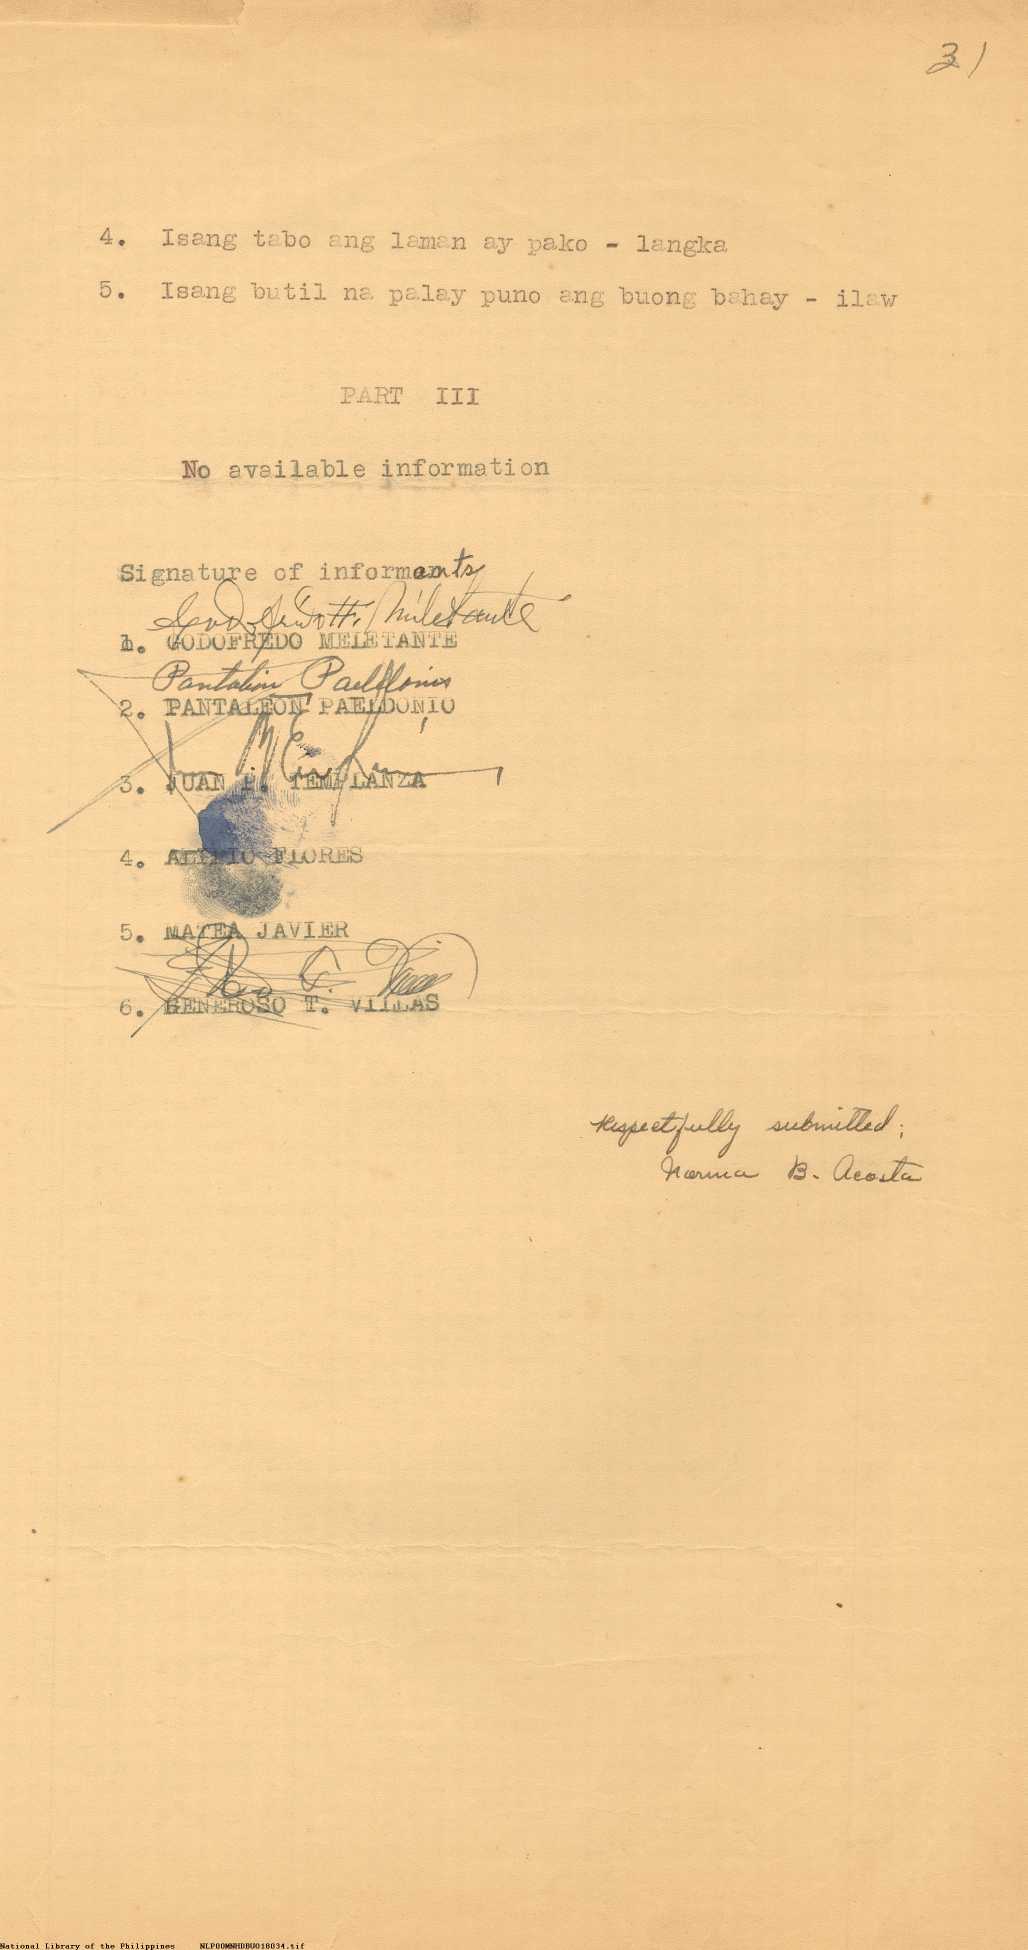 31
4. Isang tabo ang laman ay pako - langka
5. Isang butil na palay puno ang buong bahay - ilaw
PART III
No available information
Signature of informants
1. GODOFREDO MELETANTE
Pantaleon Paeldonio
2. PANTALEON PAELDONIO
3. JUAN P. TEMPLANZA
4. ALIPIO FLORES
5. MATEA JAVIER
6. GENEROSO T. VILLAS
Respectfully submitted;
Norma B. Acosta
National Library of the Philippines NLP00MNHDBU018034.tif